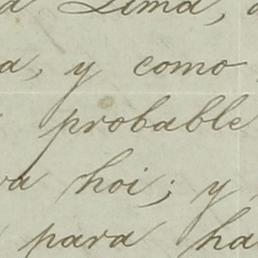 a Lima,
a, y como
probable
va hoi; y
para ha